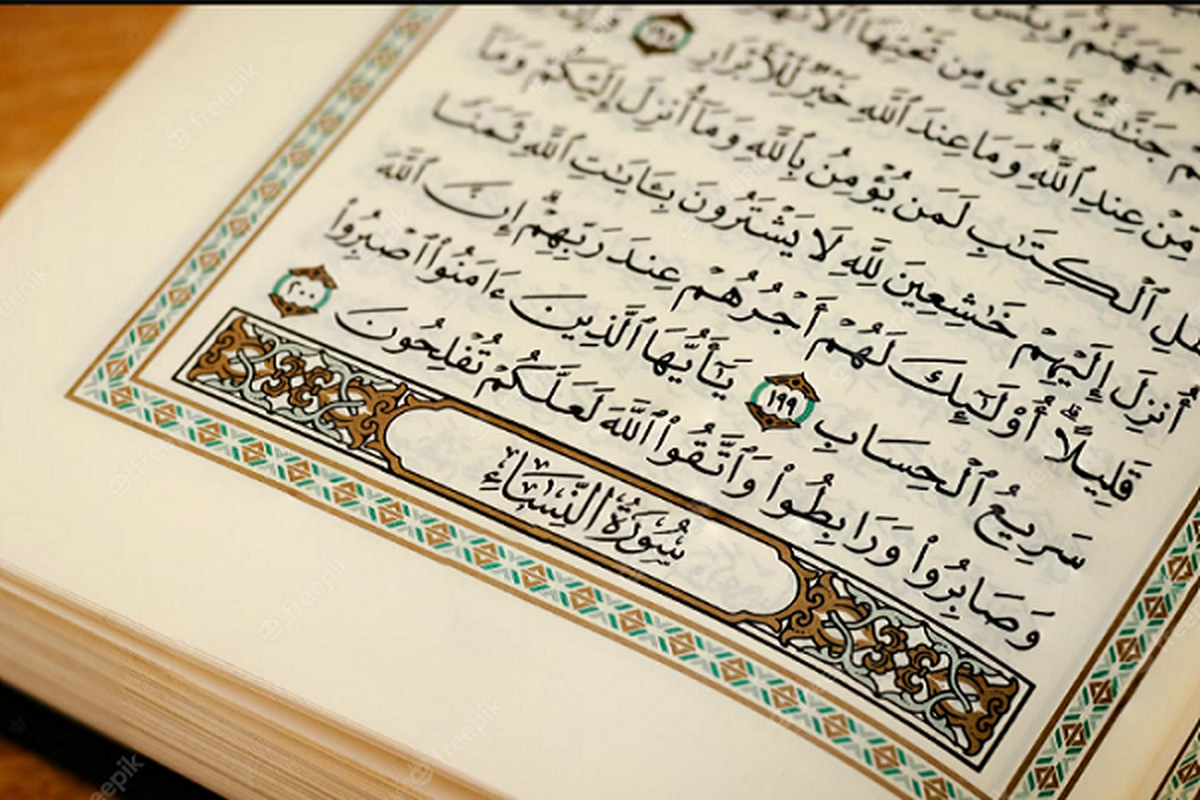 جَهَنَّمُ وَبِئْسَ
جَنَّـٰتٌ تَجْرِى مِن تَحْتِهَا ٱلْأَنْهَـٰرُ
مِّنْ عِندِ ٱللَّهِ ۗ وَمَا عِندَ ٱللَّهِ خَيْرٌ لِّلْأَبْرَارِ ١٩٨
ٱلْكِتَـٰبِ لَمَن يُؤْمِنُ بِٱللَّهِ وَمَآ أُنزِلَ إِلَيْكُمْ وَمَآ
أُنزِلَ إِلَيْهِمْ خَـٰشِعِينَ لِلَّهِ لَا يَشْتَرُونَ بِـَٔايَـٰتِ ٱللَّهِ ثَمَنًا
قَلِيلًا ۗ أُو۟لَـٰٓئِكَ لَهُمْ أَجْرُهُمْ عِندَ رَبِّهِمْ ۗ إِنَّ ٱللَّهَ
سَرِيعُ ٱلْحِسَابِ ١٩٩ يَـٰٓأَيُّهَا ٱلَّذِينَ ءَامَنُوا۟ ٱصْبِرُوا۟
وَصَابِرُوا۟ وَرَابِطُوا۟ وَٱتَّقُوا۟ ٱللَّهَ لَعَلَّكُمْ تُفْلِحُونَ ٢٠٠
سُورَةُ النِّسَاءِ
freepik